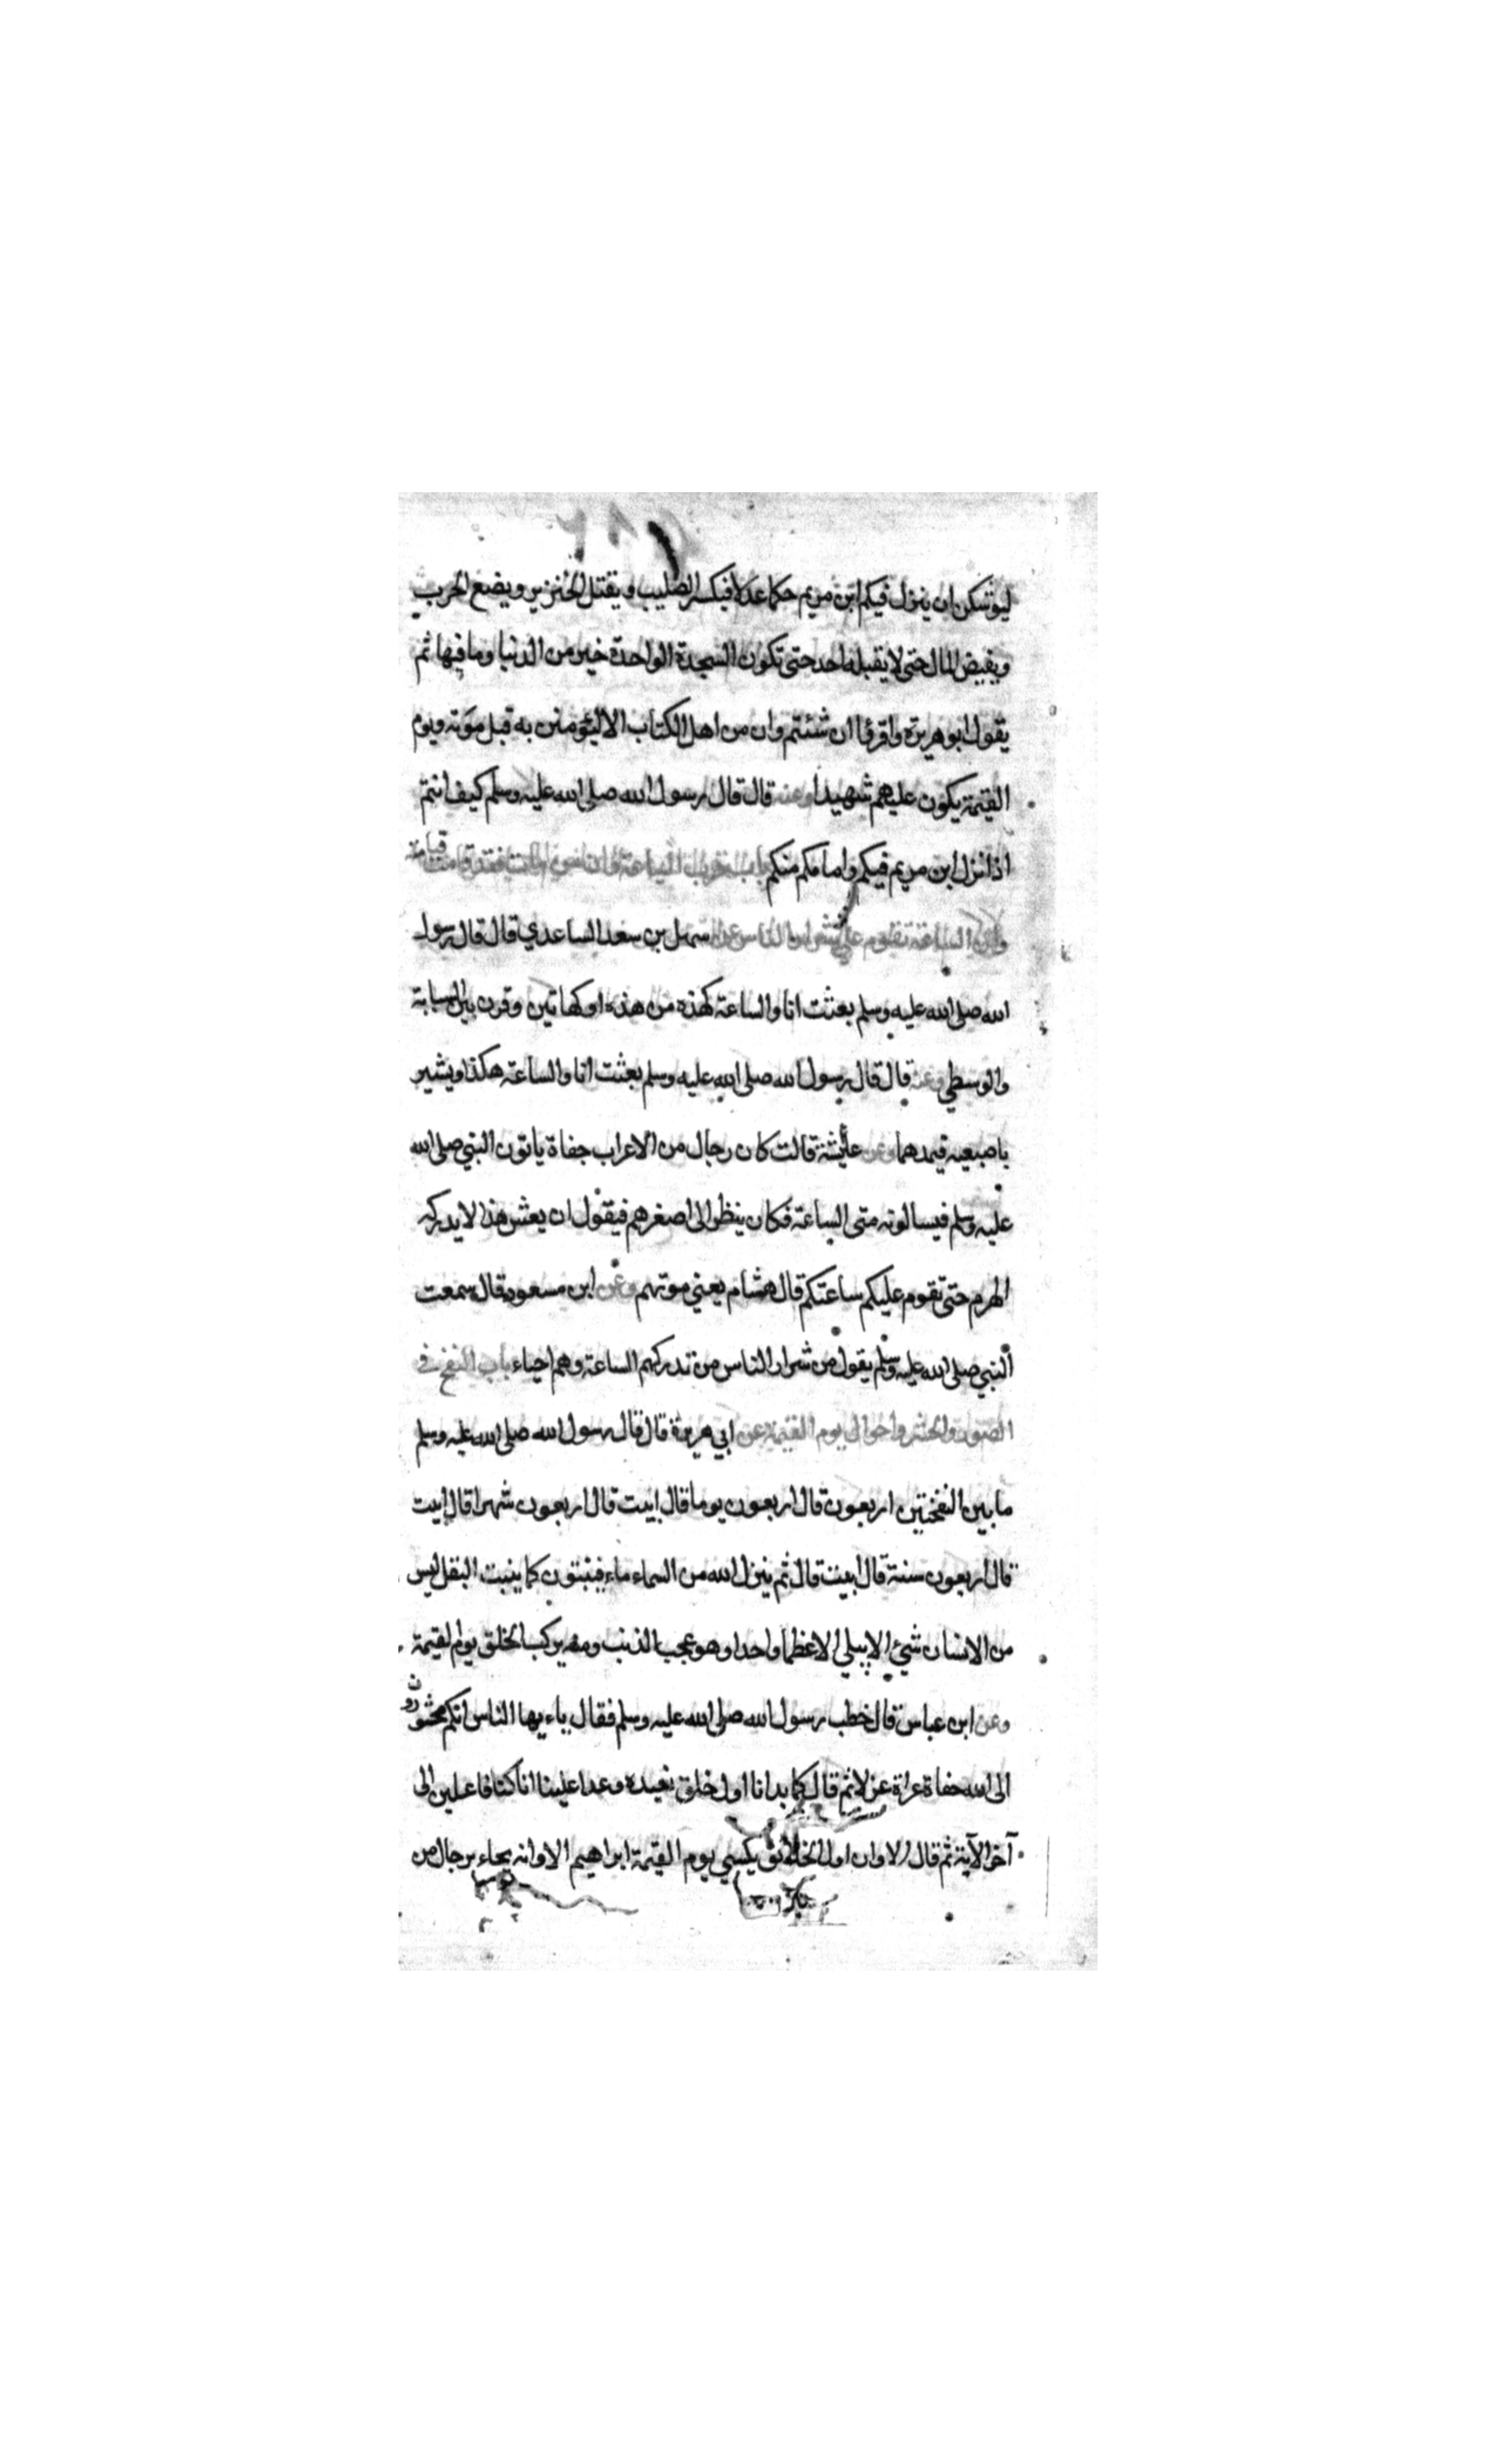 ليوشكن ان ينزل فيكم ابن مريم حكما عدلا فيكسر الصليب ويقتل الخنزير ويضع الحرب
ويفيض المال حتى لا يقبله احد حتى تكون السجدة الواحدة خير من الدنيا وما فيها ثم
يقول ابو هريرة واقرؤا ان شئتم وان من اهل الكتاب الا ليؤمنن به قبل موته ويوم
القيمة يكون عليهم شهيدا وعنه قال قال رسول الله صلى الله عليه وسلم كيف انتم
اذا نزل ابن مريم فيكم وامامكم منكم باب قرب الساعة وان من مات فقد قامت قيامته
وان الساعة تقوم على شرار الناس عن سهل بن سعد الساعدي قال قال رسول
الله صلى الله عليه وسلم بعثت انا والساعة كهذه من هذه او كهاتين وقرن بين السبابة
والوسطي وعنه قال قال رسول الله صلى الله عليه وسلم بعثت انا والساعة هكذا ويشير
باصبعيه فيمدهما وعن عائشة قالت كان رجال من الاعراب جفاة ياتون النبي صلى الله
عليه وسلم فيسالونه متى الساعة فكان ينظر الى اصغرهم فيقول ان يعش هذا لا يدركه
الهرم حتى تقوم عليكم ساعتكم قال هشام يعني موتهم وعن ابن مسعود قال سمعت
النبي صلى الله عليه وسلم يقول من شرار الناس من تدركهم الساعة وهم احياء باب النفخ في
الصور والحشر واحوال يوم القيمة عن ابي هريرة قال قال رسول الله صلى الله عليه وسلم
ما بين النفختين اربعون قال اربعون يوما قال ابيت قال اربعون شهرا قال ابيت
قال اربعون سنة قال ابيت قال ثم ينزل الله من السماء ماء فينبتون كما ينبت البقل ليس
من الانسان شيئ الا يبلي الا عظما واحدا وهو عجب الذنب ومنه يركب الخلق يوم القيمة
وعن ابن عباس قال خطب رسول الله صلى الله عليه وسلم فقال ياءيها الناس انكم محشورون
الى الله حفاة عراة غرلا ثم قال كما بدانا اول خلق نعيده وعدا علينا انا كنا فاعلين الى
آخر الآية ثم قال الا وان اول الخلائق يكسي يوم القيمة ابراهيم الا وانه يجاء برجال من